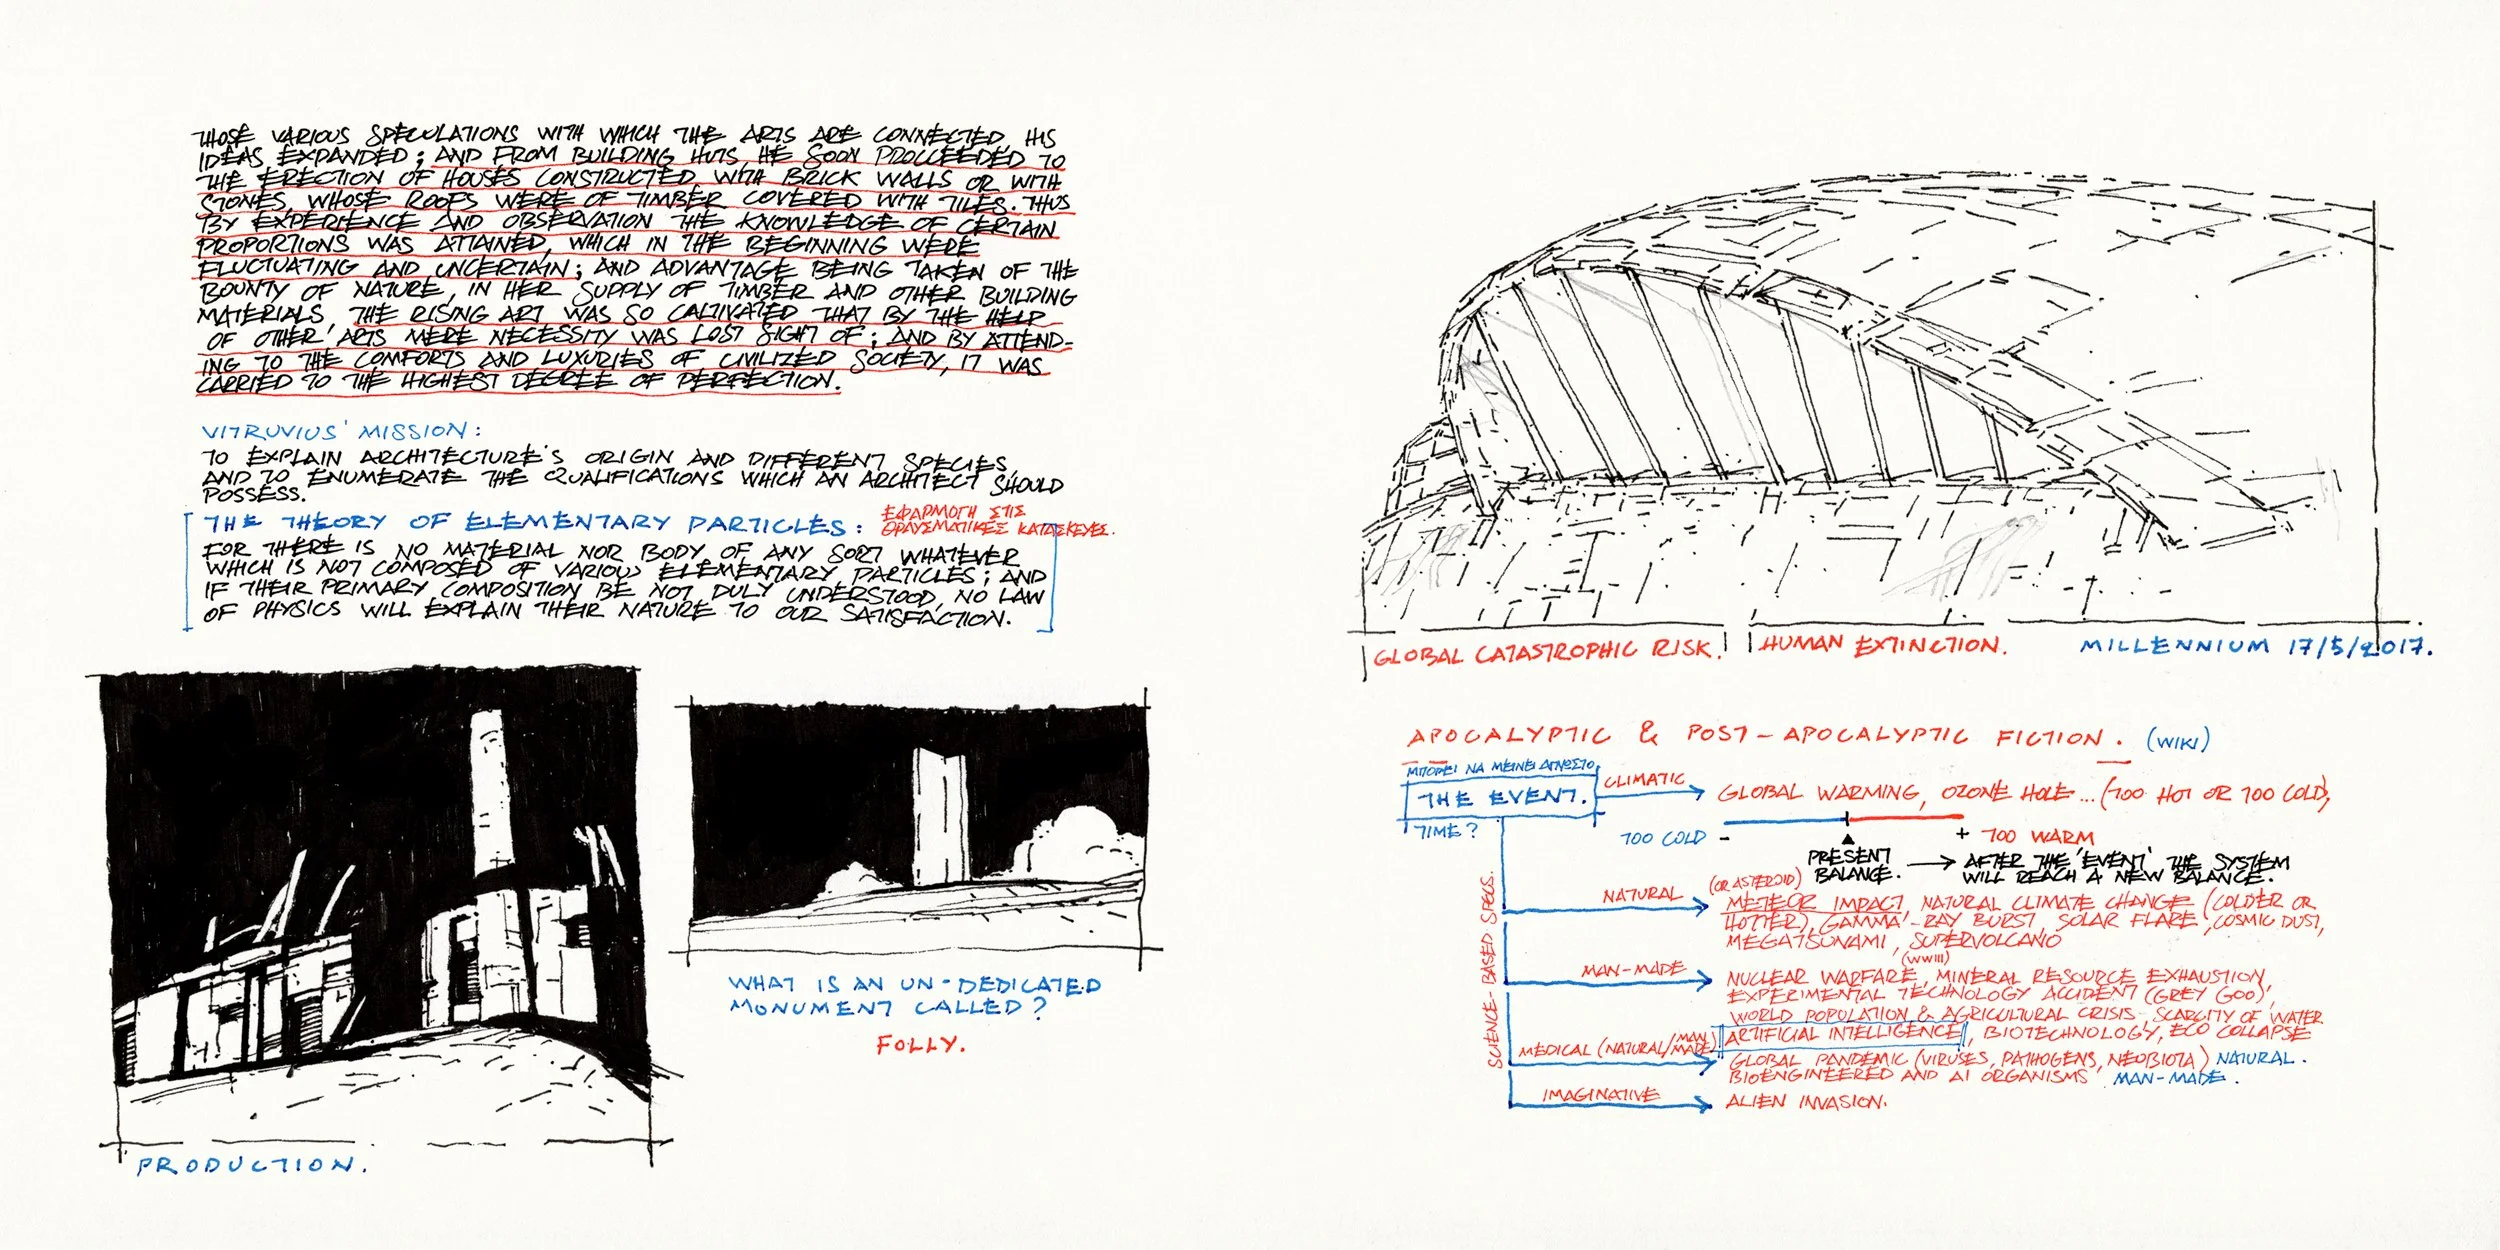 THOSE VARIOUS SPECULATIONS WITH WHICH THE ARTS ARE CONNECTED, HIS
IDEAS EXPANDED; AND FROM BUILDING HUTS, HE SOON PROCCEEDED TO
THE ERECTION OF HOUSES CONSTRUCTED WITH BRICK WALLS OR WITH
STONES, WHOSE ROOFS WERE OF TIMBER COVERED WITH TILES. THUS
BY EXPERIENCE AND OBSERVATION THE KNOWLEDGE OF CERTAIN
PROPORTIONS WAS ATTAINED, WHICH IN THE BEGINNING WERE
FLUCTUATING AND UNCERTAIN; AND ADVANTAGE BEING TAKEN OF THE
BOUNTY OF NATURE, IN HER SUPPLY OF TIMBER AND OTHER BUILDING
MATERIALS, THE RISING ART WAS SO CALTIVATED THAT BY THE HELP
OF OTHER ARTS MERE NECESSITY WAS LOST SIGHT OF; AND BY ATTEND-
ING TO THE COMFORTS AND LUXURIES OF CIVILIZED SOCIETY, IT WAS
CARRIED TO THE HIGHEST DEGREE OF PERFECTION.
VITRUVIUS' MISSION:
TO EXPLAIN ARCHITECTURE'S ORIGIN AND DIFFERENT SPECIES,
AND TO ENUMERATE THE QUALIFICATIONS WHICH AN ARCHITECT SHOULD
POSSESS.
THE THEORY OF ELEMENTARY PARTICLES: ΕΦΑΡΜΟΓΗ ΣΤΙΣ
ΘΡΑΥΣΜΑΤΙΚΕΣ ΚΑΤΑΣΚΕΥΕΣ.
FOR THERE IS NO MATERIAL NOR BODY OF ANY SORT WHATEVER
WHICH IS NOT COMPOSED OF VARIOUS ELEMENTARY PARTICLES; AND
IF THEIR PRIMARY COMPOSITION BE NOT DULY UNDERSTOOD, NO LAW
OF PHYSICS WILL EXPLAIN THEIR NATURE TO OUR SATISFACTION.
PRODUCTION.
WHAT IS AN UN-DEDICATED
MONUMENT CALLED?
FOLLY.
GLOBAL CATASTROPHIC RISK. HUMAN EXTINCTION. MILLENNIUM 17/5/2017.
APOCALYPTIC & POST-APOCALYPTIC FICTION. (WIKI)
ΜΠΟΡΕΙ ΝΑ ΜΕΙΝΕΙ ΑΓΝΩΣΤΟ
THE EVENT.
TIME?
CLIMATIC
GLOBAL WARMING, OZONE HOLE... (TOO HOT OR TOO COLD)
TOO COLD - + TOO WARM
PRESENT
BALANCE.
AFTER THE 'EVENT' THE SYSTEM
WILL REACH A NEW BALANCE.
SCIENCE-BASED SPECS.
NATURAL
(OR ASTEROID)
METEOR IMPACT, NATURAL CLIMATE CHANGE (COLDER OR
HOTTER), GAMMA-RAY BURST, SOLAR FLARE, COSMIC DUST,
MEGATSUNAMI, SUPERVOLCANO
MAN-MADE
(WWIII)
NUCLEAR WARFARE, MINERAL RESOURCE EXHAUSTION,
EXPERIMENTAL TECHNOLOGY ACCIDENT (GREY GOO),
WORLD POPULATION & AGRICULTURAL CRISIS - SCARCITY OF WATER
ARTIFICIAL INTELLIGENCE, BIOTECHNOLOGY, ECO COLLAPSE
MEDICAL (NATURAL/MAN MADE)
GLOBAL PANDEMIC (VIRUSES, PATHOGENS, NEOBIOTA) NATURAL.
BIOENGINEERED AND AI ORGANISMS MAN-MADE.
IMAGINATIVE
ALIEN INVASION.